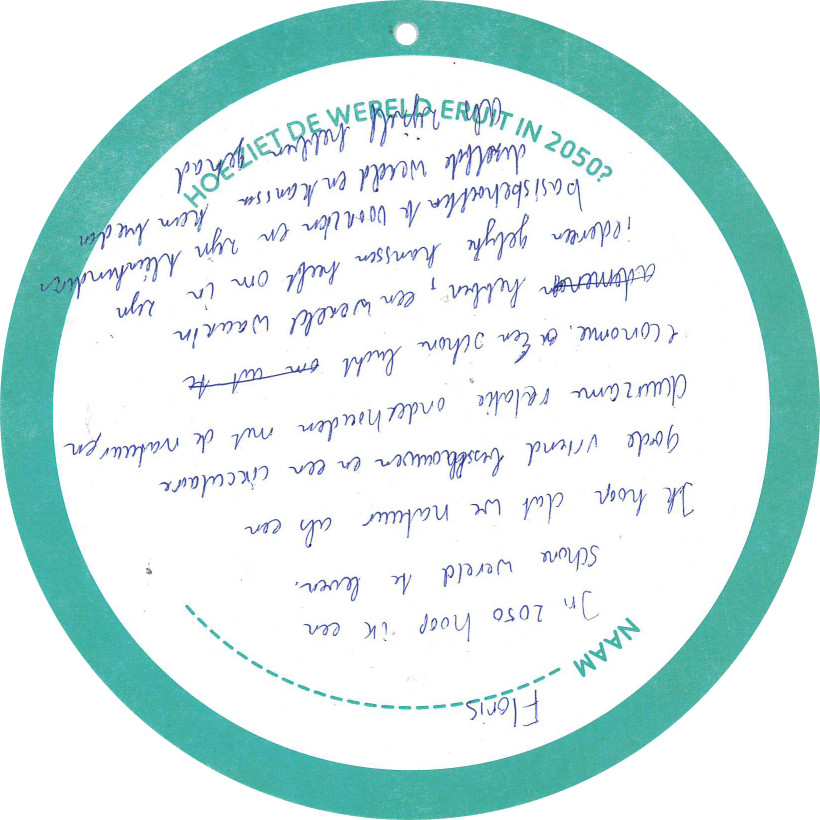 HOE ZIET DE WERELD ERUIT IN 2050?
NAAM
Floris
In 2050 hoop ik een
schone wereld te leven.
Ik hoop dat we natuur als een
goede vriend beschouwen en een circulaire
duurzame relatie onderhouden met de natuur en
economie. Een schone lucht om uit te
ademen hebben, een wereld waarin
iedereen gelijke kanssen heeft om in zijn
basisbehoeften te voorzien en zijn kleinkinderen
dezelfde wereld en kanssen kan bieden
als hijzelf hebben gehad